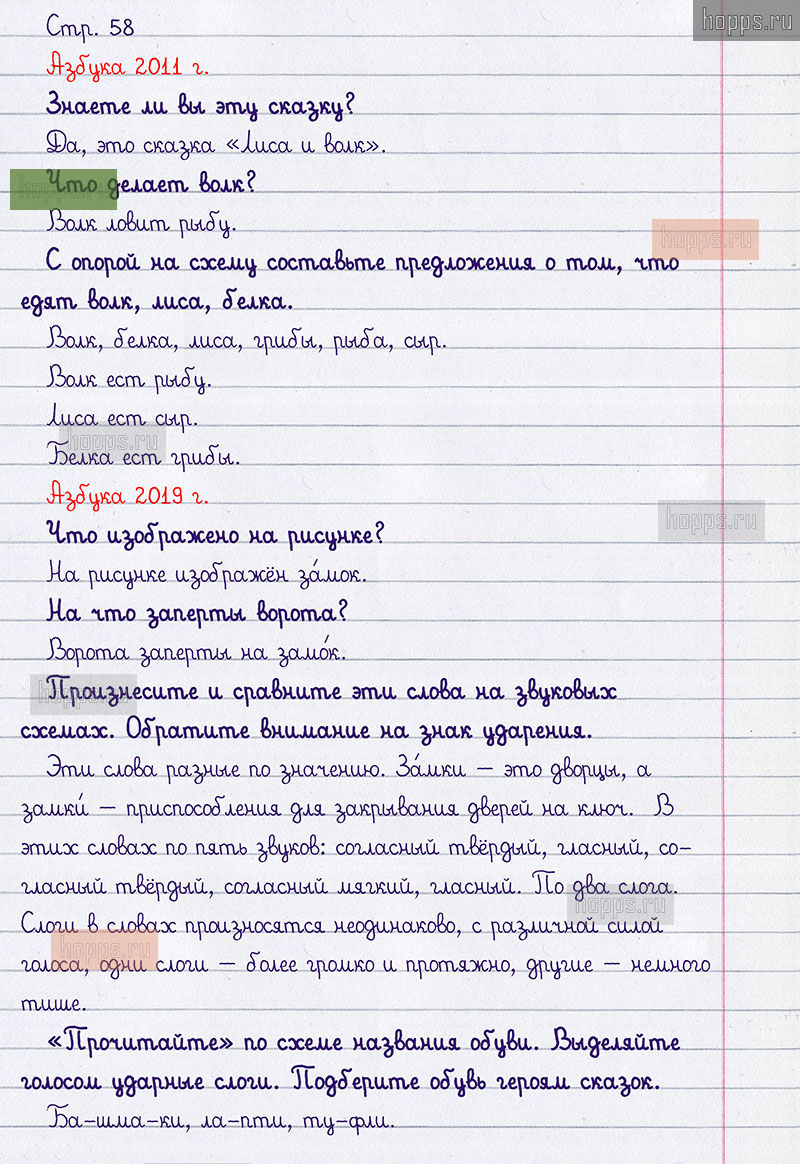 hopps.ru
Стр. 58
Азбука 2011 г.
Знаете ли вы эту сказку?
Да, это сказка «Лиса и волк».
Что делает волк?
Волк ловит рыбу.
hopps.ru
С опорой на схему составьте предложения о том, что
едят волк, лиса, белка.
Волк, белка, лиса, грибы, рыба, сыр.
Волк ест рыбу.
Лиса ест сыр.
hopps.ru
Белка ест грибы.
Азбука 2019 г.
hopps.ru
Что изображено на рисунке?
На рисунке изображён за́мок.
На что заперты ворота?
Ворота заперты на замо́к.
Произнесите и сравните эти слова на звуковых
схемах. Обратите внимание на знак ударения.
Эти слова разные по значению. За́мки – это дворцы, а
замки́ – приспособления для закрывания дверей на ключ. В
этих словах по пять звуков: согласный твёрдый, гласный, со-
гласный твёрдый, согласный мягкий, гласный. По два слога.
hopps.ru
Слоги в словах произносятся неодинаково, с различной силой
hopps.ru
голоса, одни слоги – более громко и протяжно, другие – немного
тише.
«Прочитайте» по схеме названия обуви. Выделяйте
голосом ударные слоги. Подберите обувь героям сказок.
Ба-шма-ки, ла-пти, ту-фли.